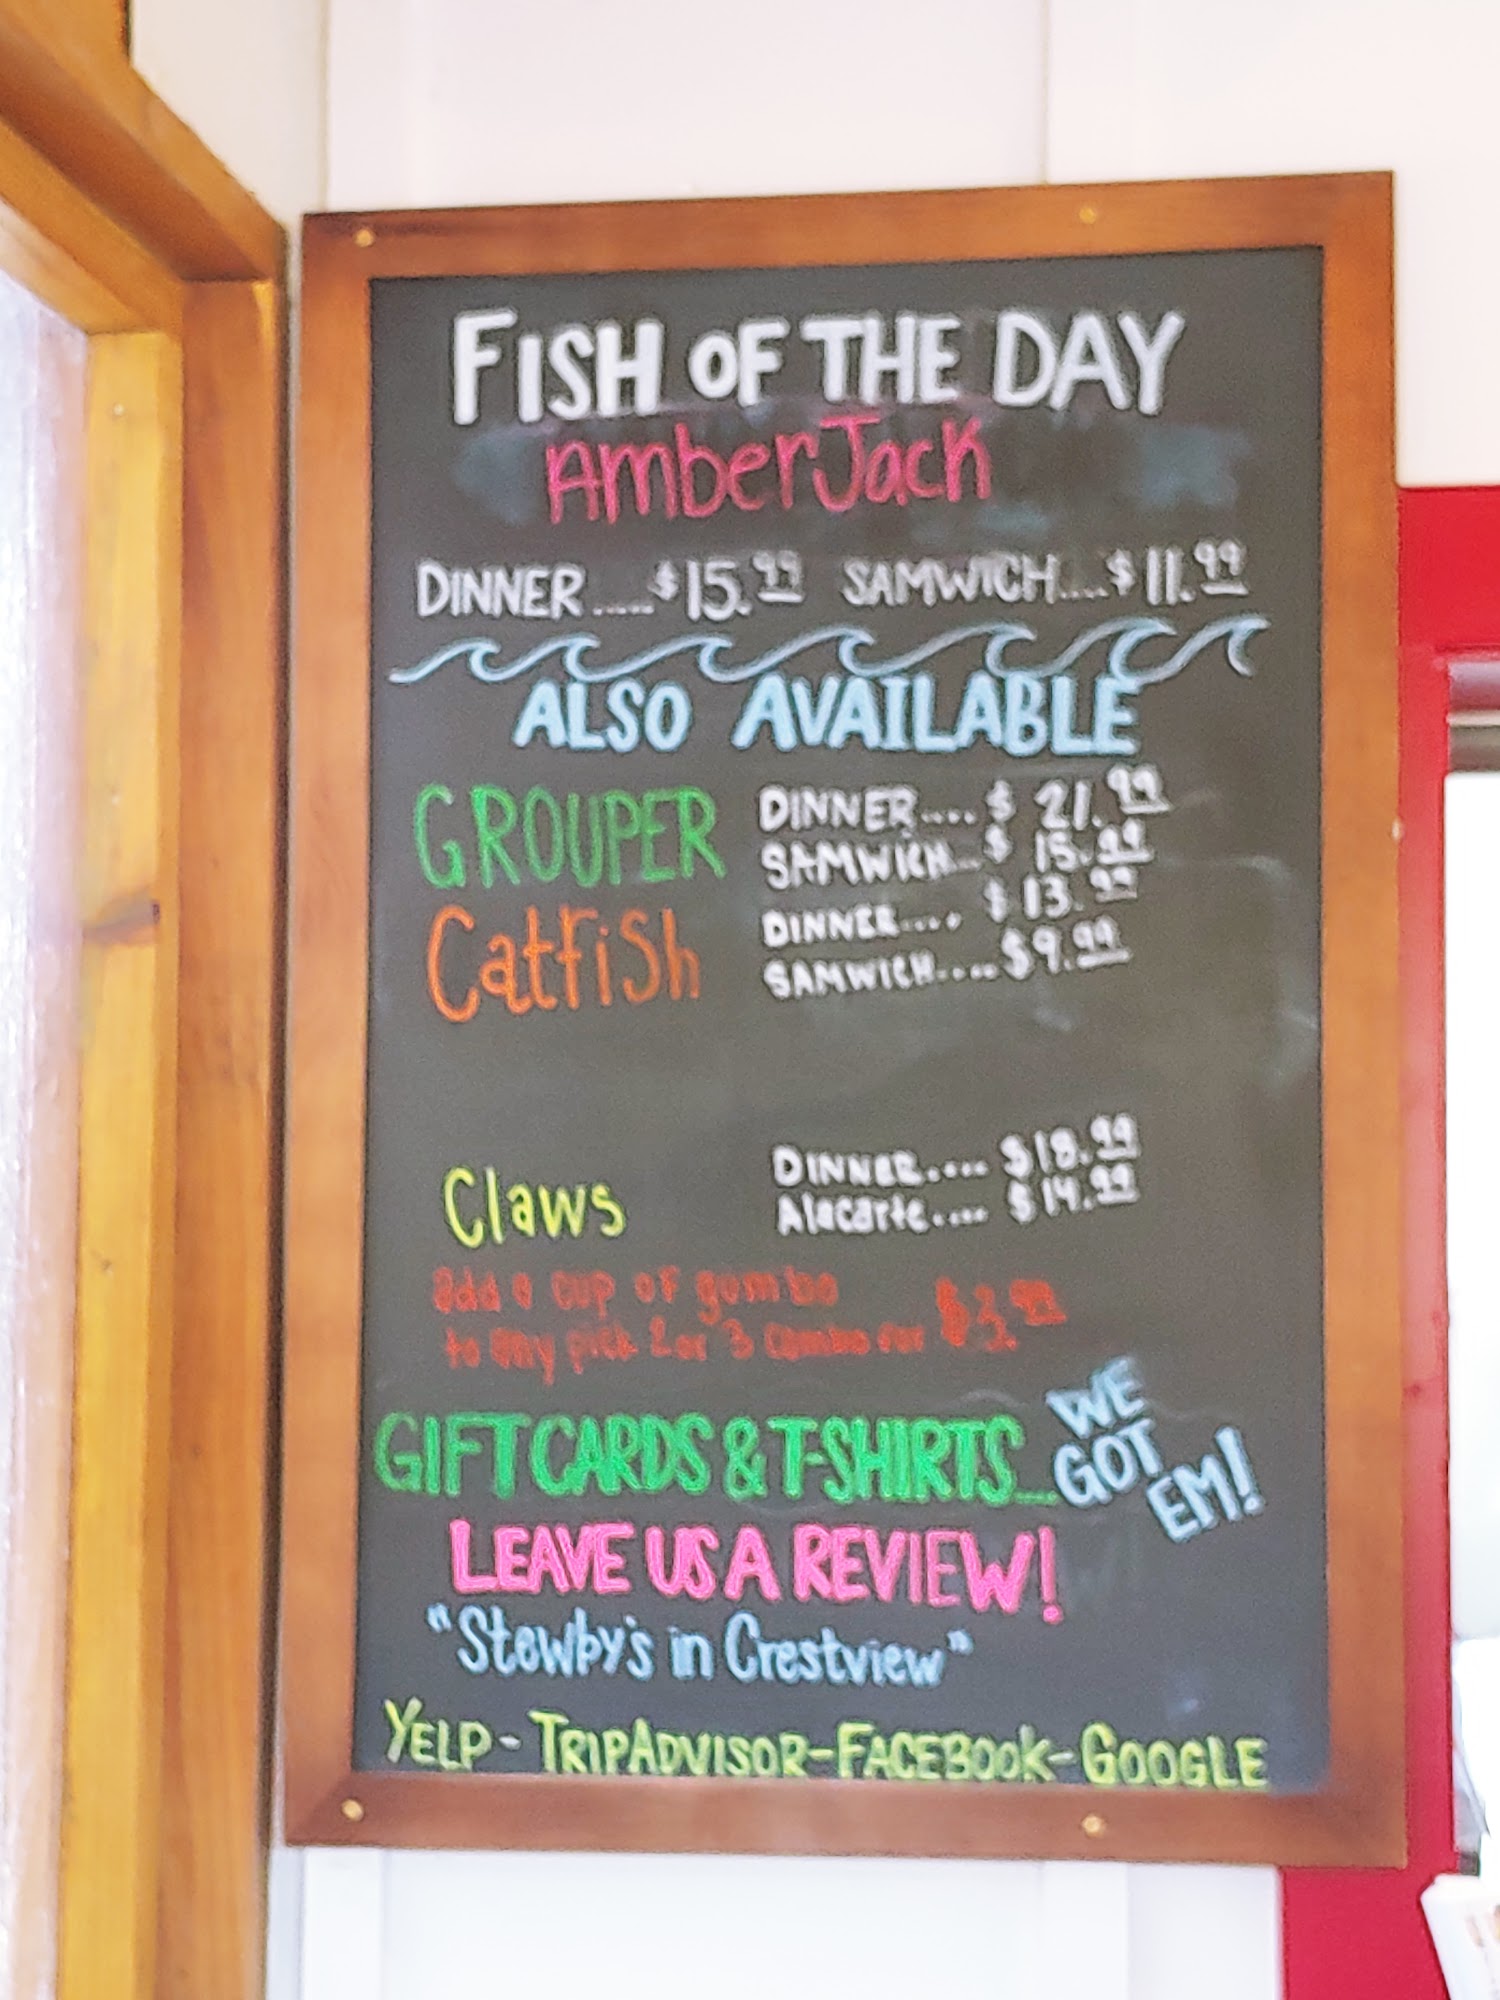 FISH OF THE DAY
AmberJack
DINNER.....$15.99 SAMWICH....$11.99
ALSO AVAILABLE
GROUPER DINNER....$ 21.99
SAMWICH...$ 15.99
Catfish DINNER....$13.99
SAMWICH....$9.99
Claws DINNER....$18.99
Alacarte....$14.99
add a cup of gumbo
to any pick 2 or 3 combo for $3.99
GIFT CARDS & T-SHIRTS... WE GOT EM!
LEAVE US A REVIEW!
"Stewby's in Crestview"
YELP-TRIPADVISOR-FACEBOOK-GOOGLE